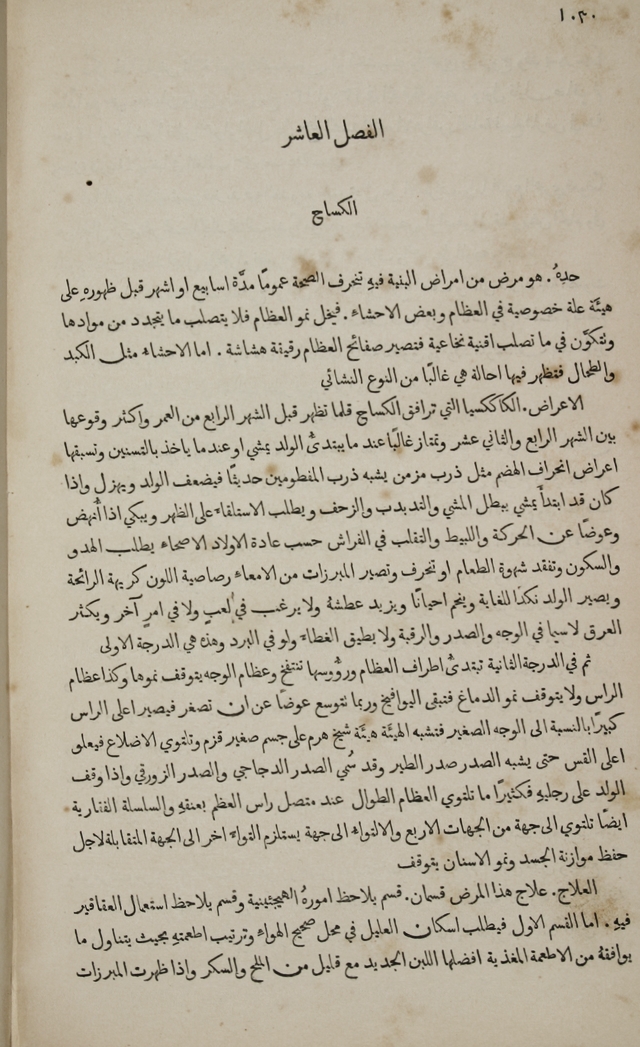 ١٠٣٠
الفصل العاشر
الكساح
حدهُ. هو مرض من امراض البنية فيهِ تنحرف الصحة عمومًا مدَّة اسابيع او اشهر قبل ظهورهِ على
هيئة علة خصوصية في العظام وبعض الاحشاء. فيخل نمو العظام فلا يتصلب ما يتجدد من موادها
وتتكوَّن في ما تصلب اقنية نخاعية فتصير صفائح العظام رقيقة هشاشة. اما الاحشاء مثل الكبد
والطحال فتظهر فيها احالة هي غالبًا من النوع النشائي
الاعراض. الكاككسيا التي ترافق الكساح قلما تظهر قبل الشهر الرابع من العمر واكثر وقوعها
بين الشهر الرابع والثاني عشر وتمتاز غالبًا عند ما يبتدئُ الولد يمشي او عند ما ياخذ بالتسنين وتسبقها
اعراض انحراف الهضم مثل ذرب مزمن يشبه ذرب المفطومين حديثًا فيضعف الولد ويهزل واذا
كان قد ابتدأَ يمشي يبطل المشي والتدبدب والزحف ويطلب الاستلقاء على الظهر ويبكي اذا أُنهض
وعوضًا عن الحركة واللبيط والتقلب في الفراش حسب عادة الاولاد الاصحاء يطلب الهدو
والسكون وتفقد شهوة الطعام او تنحرف وتصير المبرزات من الامعاء رصاصية اللون كريهة الرائحة
ويصير الولد نكدًا للغاية وينحم احيانًا ويزيد عطشهُ ولا يرغب في لعبٍ ولا في امرٍ آخر ويكثر
العرق لاسيما في الوجه والصدر والرقبة ولا يطيق الغطاء ولو في البرد وهذه هي الدرجة الاولى
ثم في الدرجة الثانية تبتدئُ اطراف العظام ورؤُوسها تنتفخ وعظام الوجه يتوقف نموها وكذا عظام
الراس ولا يتوقف نمو الدماغ فتبقى اليوافيخ وربما تتوسع عوضًا عن ان تصغر فيصير اعلى الراس
كبيرًا بالنسبة الى الوجه الصغير فتشبه الهيئَة هيئَة شيخ هرم على جسم صغير قزم وتلتوي الاضلاع فيعلو
اعلى القس حتى يشبه الصدر صدر الطير وقد سُمي الصدر الدجاجي والصدر الزورقي واذا وقف
الولد على رجليهِ فكثيرًا ما تلتوي العظام الطوال عند متصل راس العظم بعنقهِ والسلسلة الفقارية
ايضًا تلتوي الى جهة من الجهات الاربع والالتواء الى جهة يستلزم التواء اخر الى الجهة المتقابلة لاجل
حفظ موازنة الجسد ونمو الاسنان يتوقف
العلاج. علاج هذا المرض قسمان. قسم يلاحظ امورهُ الهيجينية وقسم يلاحظ استعمال العقاقير
فيهِ. اما القسم الاول فيطلب اسكان العليل في محل صحيح الهواء وترتيب اطعمتهِ بحيث يتناول ما
يوافقهُ من الاطعمة المغذية افضلها اللبن الجديد مع قليل من الملح والسكر واذا ظهرت المبرزات